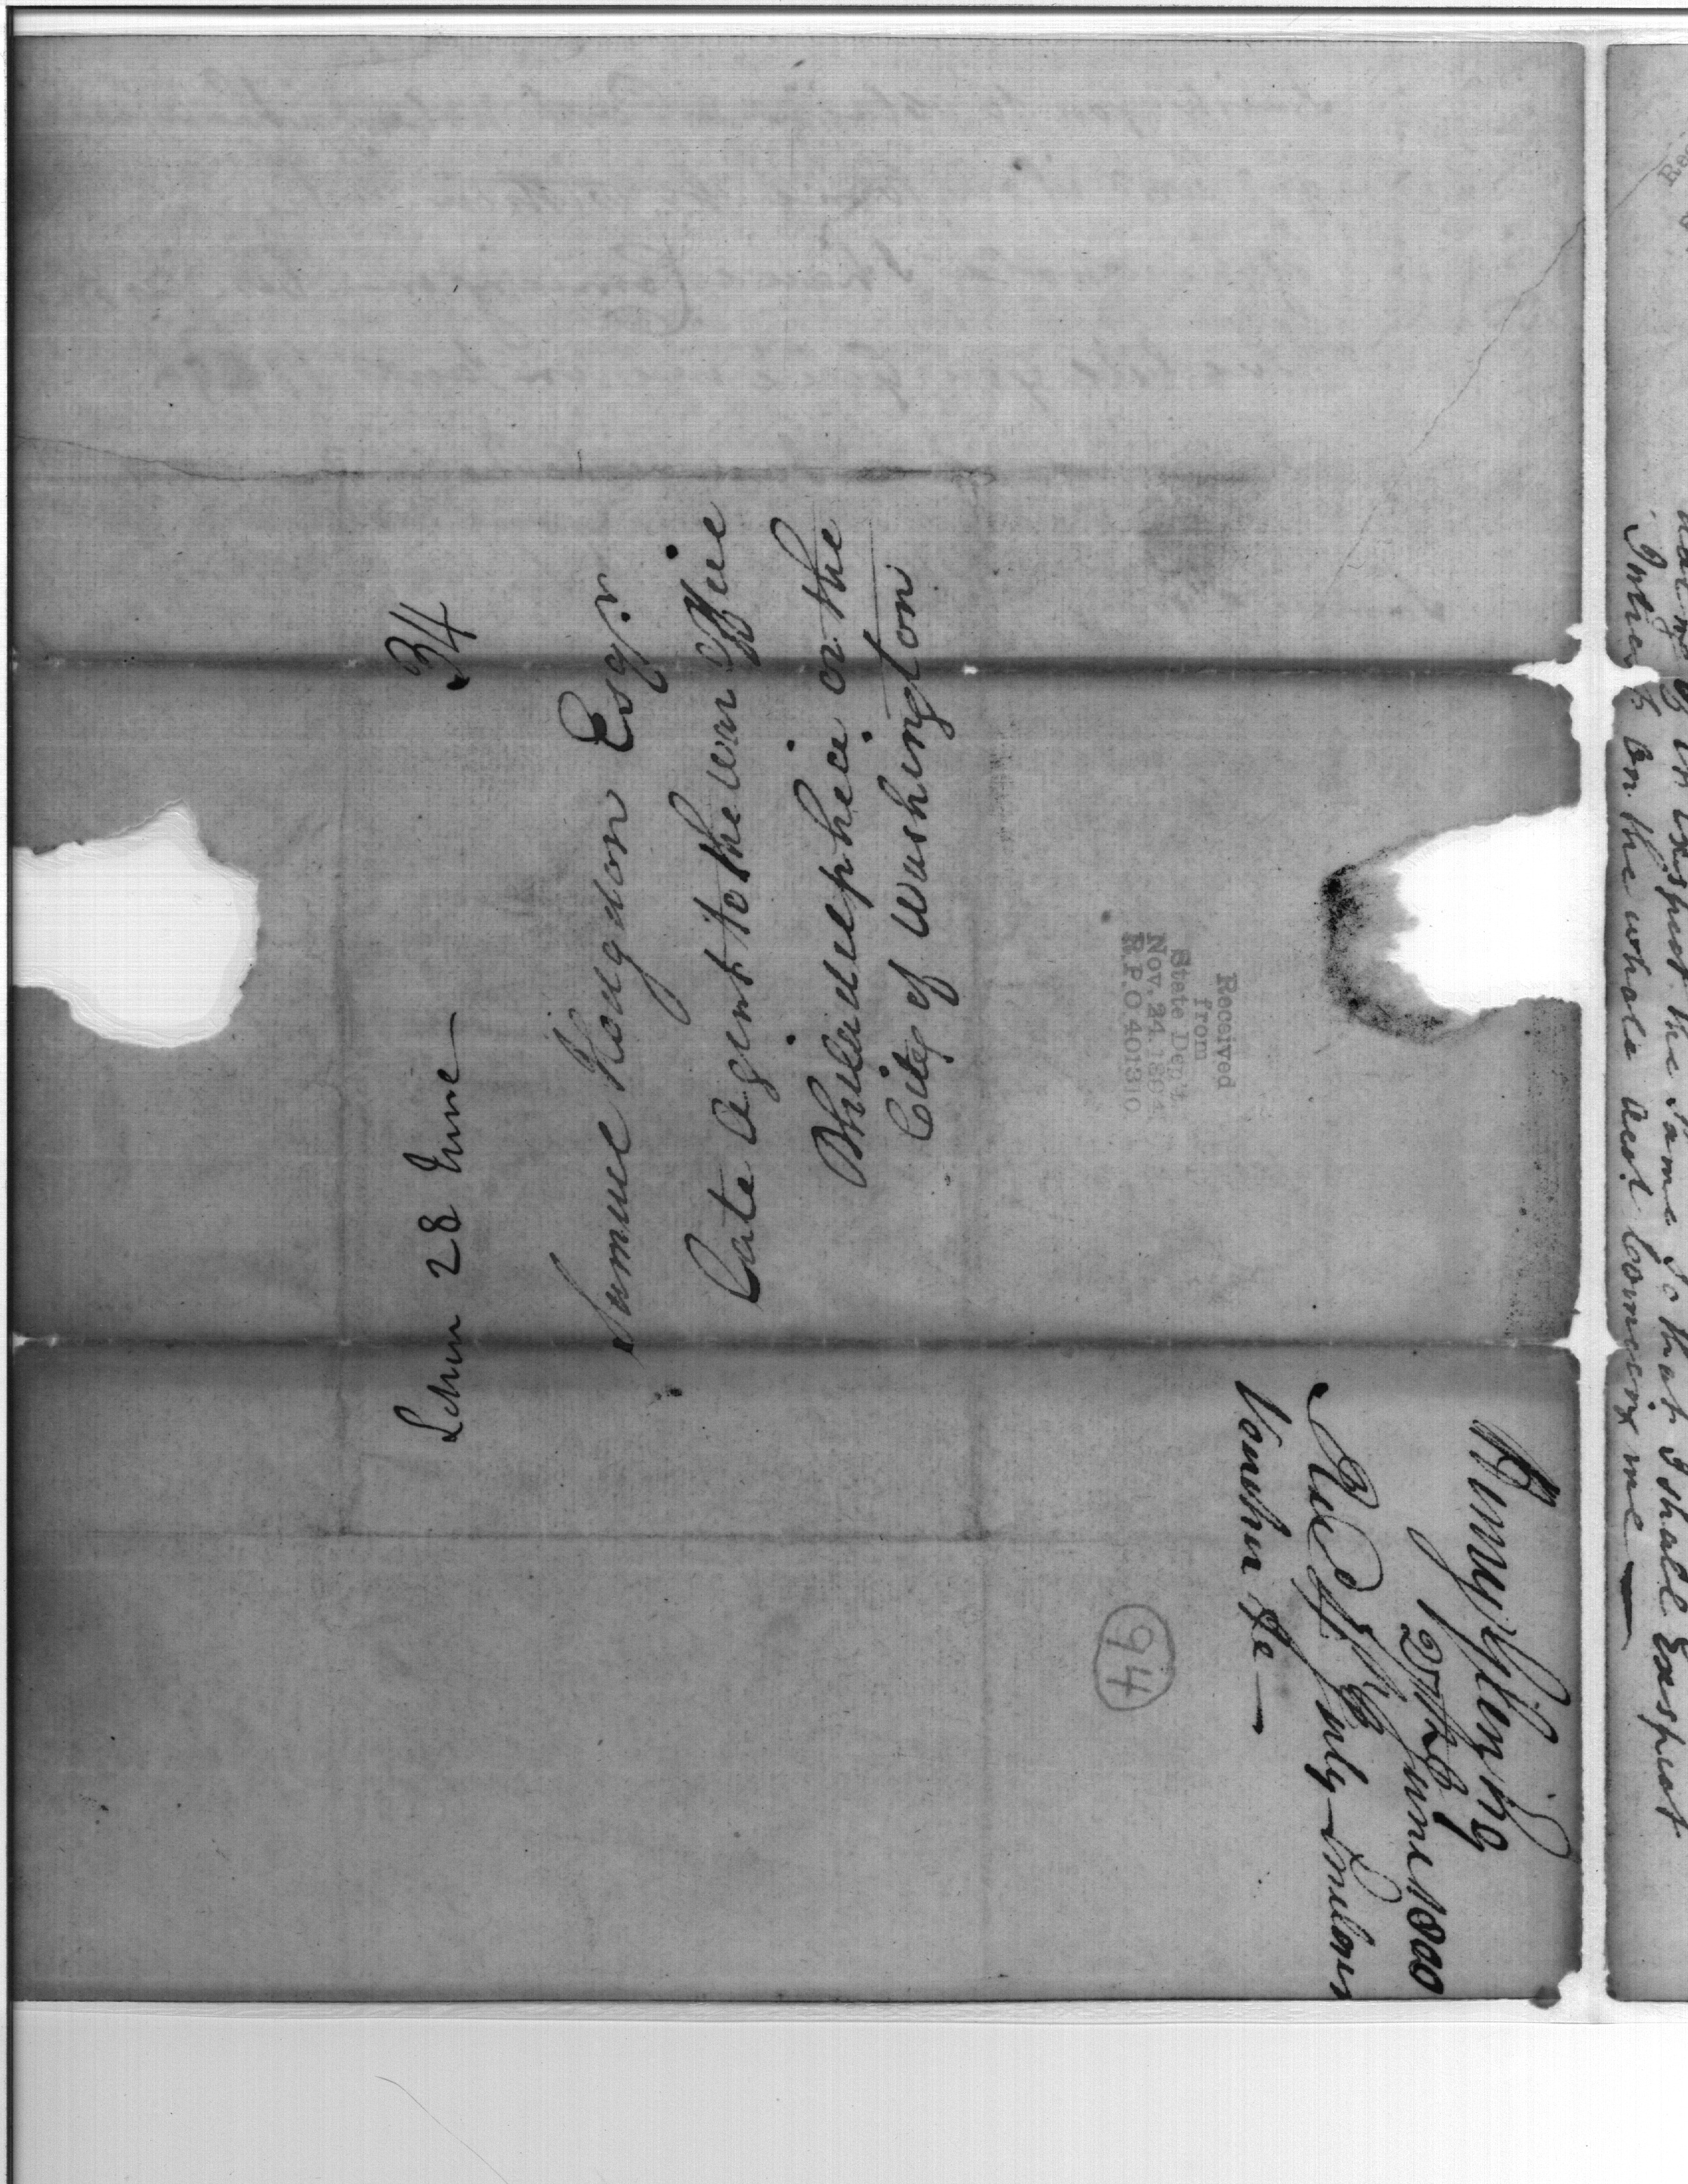 Lebn 28 June — 34
Samuel Hodgdon Esqr.
Late Agent to the war Office
Philadelphia or the
City of Washington
Received
from
State Dep't.
Nov. 24. 1894.
R.P.O 401310
27th June 1800
Recd 1st July
Voucher &c —
94
in exspect the Same So that I shall Exspect
Interest on the whole and Convenx me —